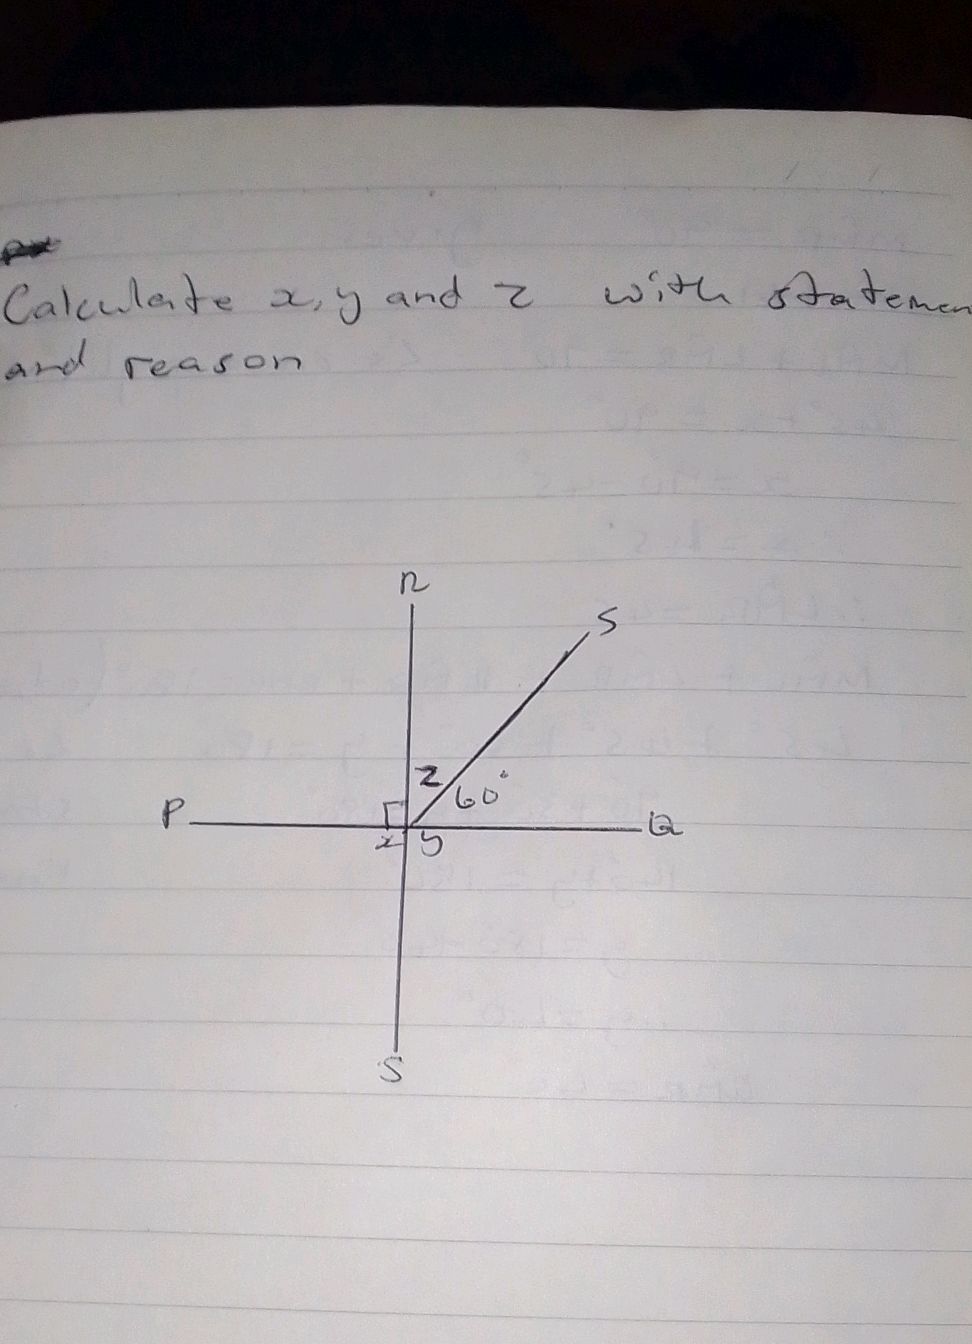 Calculate x, y and z with statemen
and reason
R
S
z
60°
P
Q
x y
S